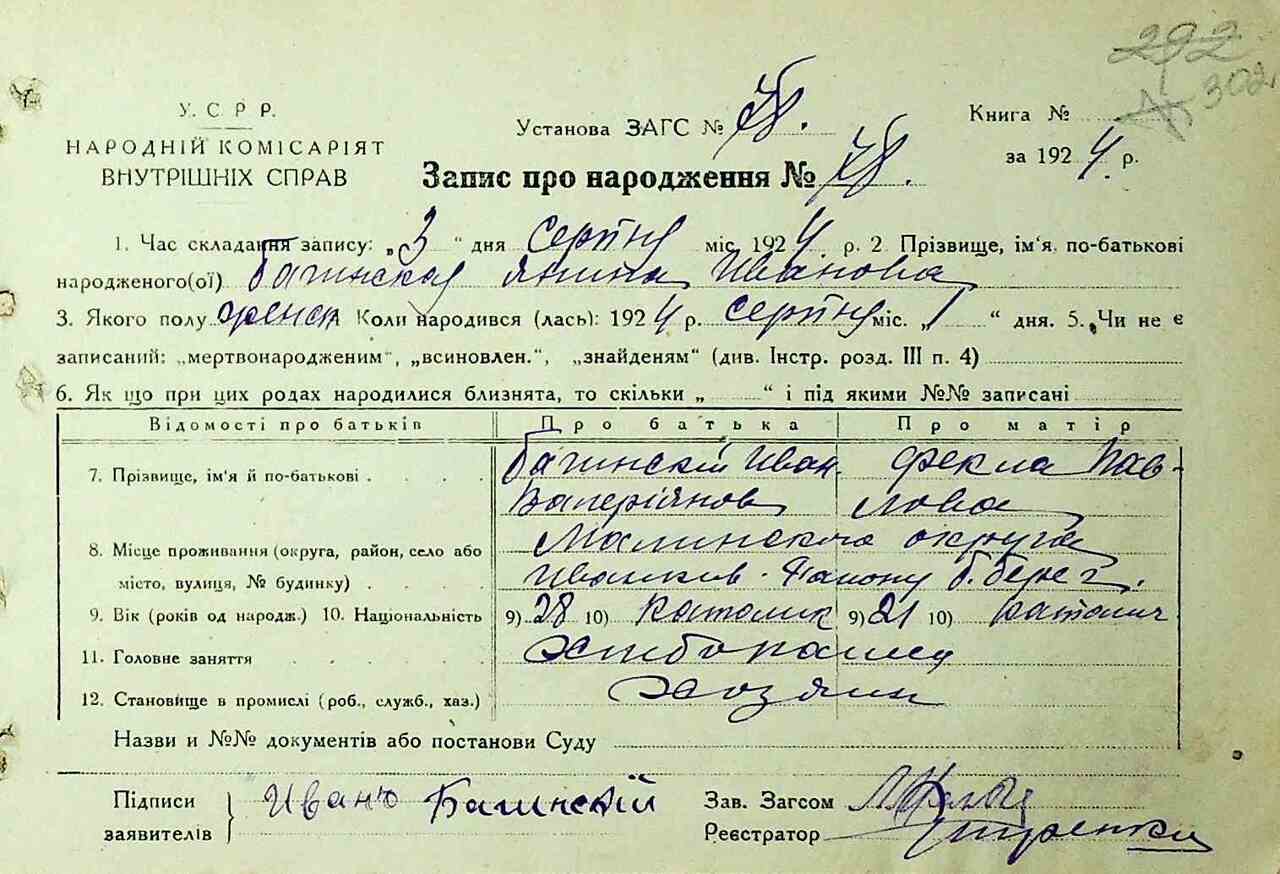 292
302
У. С. Р. Р.
НАРОДНІЙ КОМІСАРІЯТ
ВНУТРІШНІХ СПРАВ
Установа ЗАГС № 78.
Книга №
за 1924 р.
Запис про народження № 78.
1. Час складання запису: „3" дня серпня міс. 1924 р. 2. Прізвище, ім'я, по-батькові
народженого(ої) Багинская Янина Иванова
3. Якого полу женск 4 Коли народився (лась): 1924 р. серпня міс. „1" дня. 5. Чи не є
записаний: „мертвонародженим", „всиновлен.", „знайденям" (див. Інстр. розд. III п. 4)
6. Як що при цих родах народилися близнята, то скільки „ " і під якими №№ записані
Відомості про батьків Про батька Про матір
7. Прізвище, ім'я й по-батькові . . . . Багинский Иван. Фекла Пав-
Валеріянов лова
8. Місце проживання (округа, район, село або Малинская округа
місто, вулиця, № будинку) . . . . Иванков. Району б. берег.
9. Вік (років од народж.) 10. Національність 9) 28 10) католик 9) 21 10) католич
11. Головне заняття . . . . . Хлібопашец
12. Становище в промислі (роб., служб., хаз.) Хозяин
Назви и №№ документів або постанови Суду
Підписи Иванъ Багинскій Зав. Загсом
заявителів Реєстратор